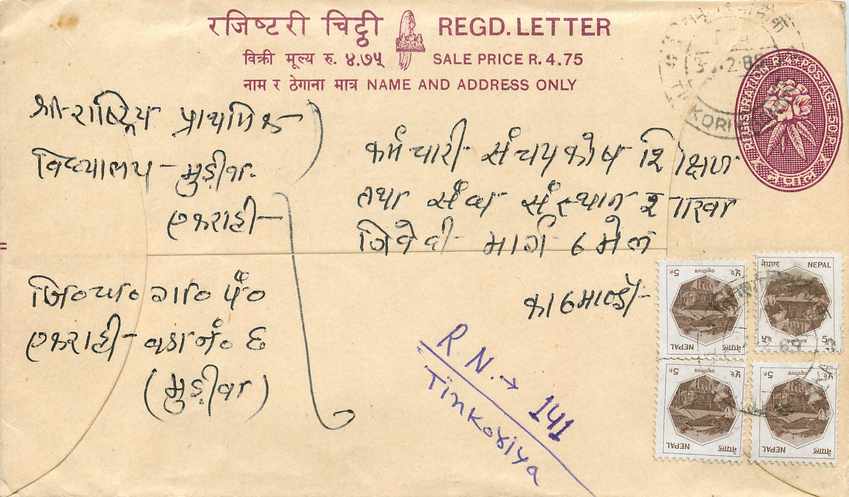 रजिष्टरी चिट्ठी REGD. LETTER
बिक्री मूल्य रु. ४.७५ SALE PRICE R. 4.75
नाम र ठेगाना मात्र NAME AND ADDRESS ONLY
REGISTRATION & POSTAGE 50P.
नेपाल
श्री राष्ट्रिय प्राथमिक
विद्यालय - मुडीवा
एकराही -
जि० ध० गा० पं०
एकराही - वडा नं. ६
(मुडीवा)
कर्मचारी संचयकोष शिक्षण
तथा सेवा संस्थान शाखा
त्रिवेदी मार्ग ६ मेल
काठमाण्डौ -
R.N. → 141
Tinkoriya
NEPAL
NEPAL
NEPAL
NEPAL